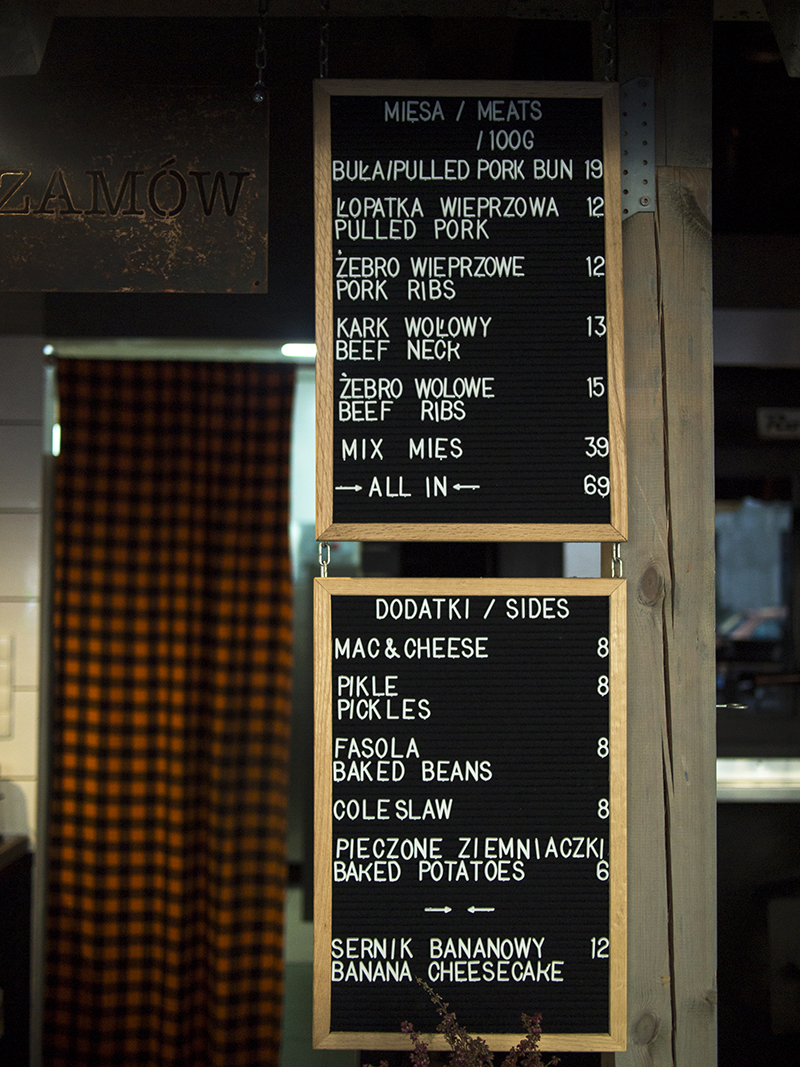 ZAMÓW
MIĘSA / MEATS
/100G
BUŁA/PULLED PORK BUN 19
ŁOPATKA WIEPRZOWA 12
PULLED PORK
ŻEBRO WIEPRZOWE 12
PORK RIBS
KARK WOŁOWY 13
BEEF NECK
ŻEBRO WOŁOWE 15
BEEF RIBS
MIX MIĘS 39
→ ALL IN ← 69
DODATKI / SIDES
MAC & CHEESE 8
PIKLE 8
PICKLES
FASOLA 8
BAKED BEANS
COLESLAW 8
PIECZONE ZIEMNIACZKI
BAKED POTATOES 6
→ ←
SERNIK BANANOWY 12
BANANA CHEESECAKE